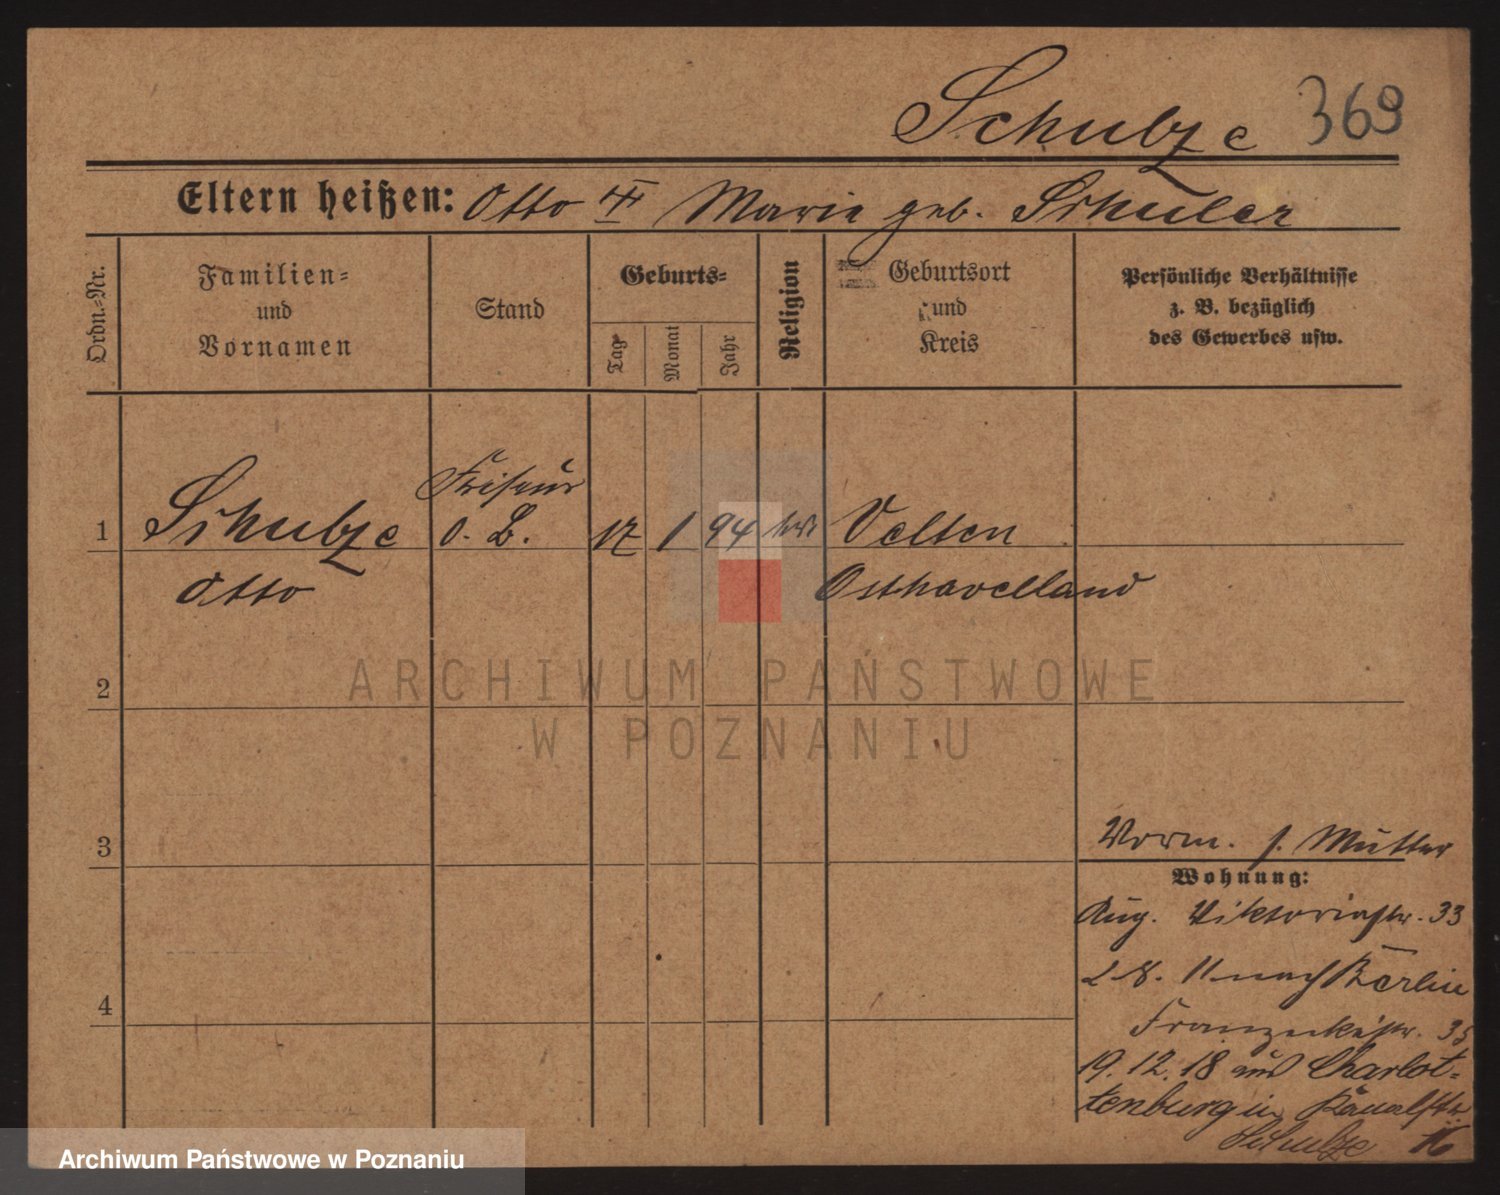 Schulze 369
Eltern heißen: Otto u Marie geb. Schuler
Ordn.-Nr.
Familien-
und
Vornamen
Stand
Geburts-
Tag
Monat
Jahr
Religion
Geburtsort
und
Kreis
Persönliche Verhältnisse
z. B. bezüglich
des Gewerbes usw.
1 Schulze
Otto
Friseur
o. B.
17 1 94
Velten
Osthavelland
2
ARCHIWUM PAŃSTWOWE
W POZNANIU
3
4
Vorm. s. Mutter
Wohnung:
Aug. Viktoriastr. 33
nach Berlin
19.12.18 aus Charlot-
tenburg in
Schulze
Archiwum Państwowe w Poznaniu